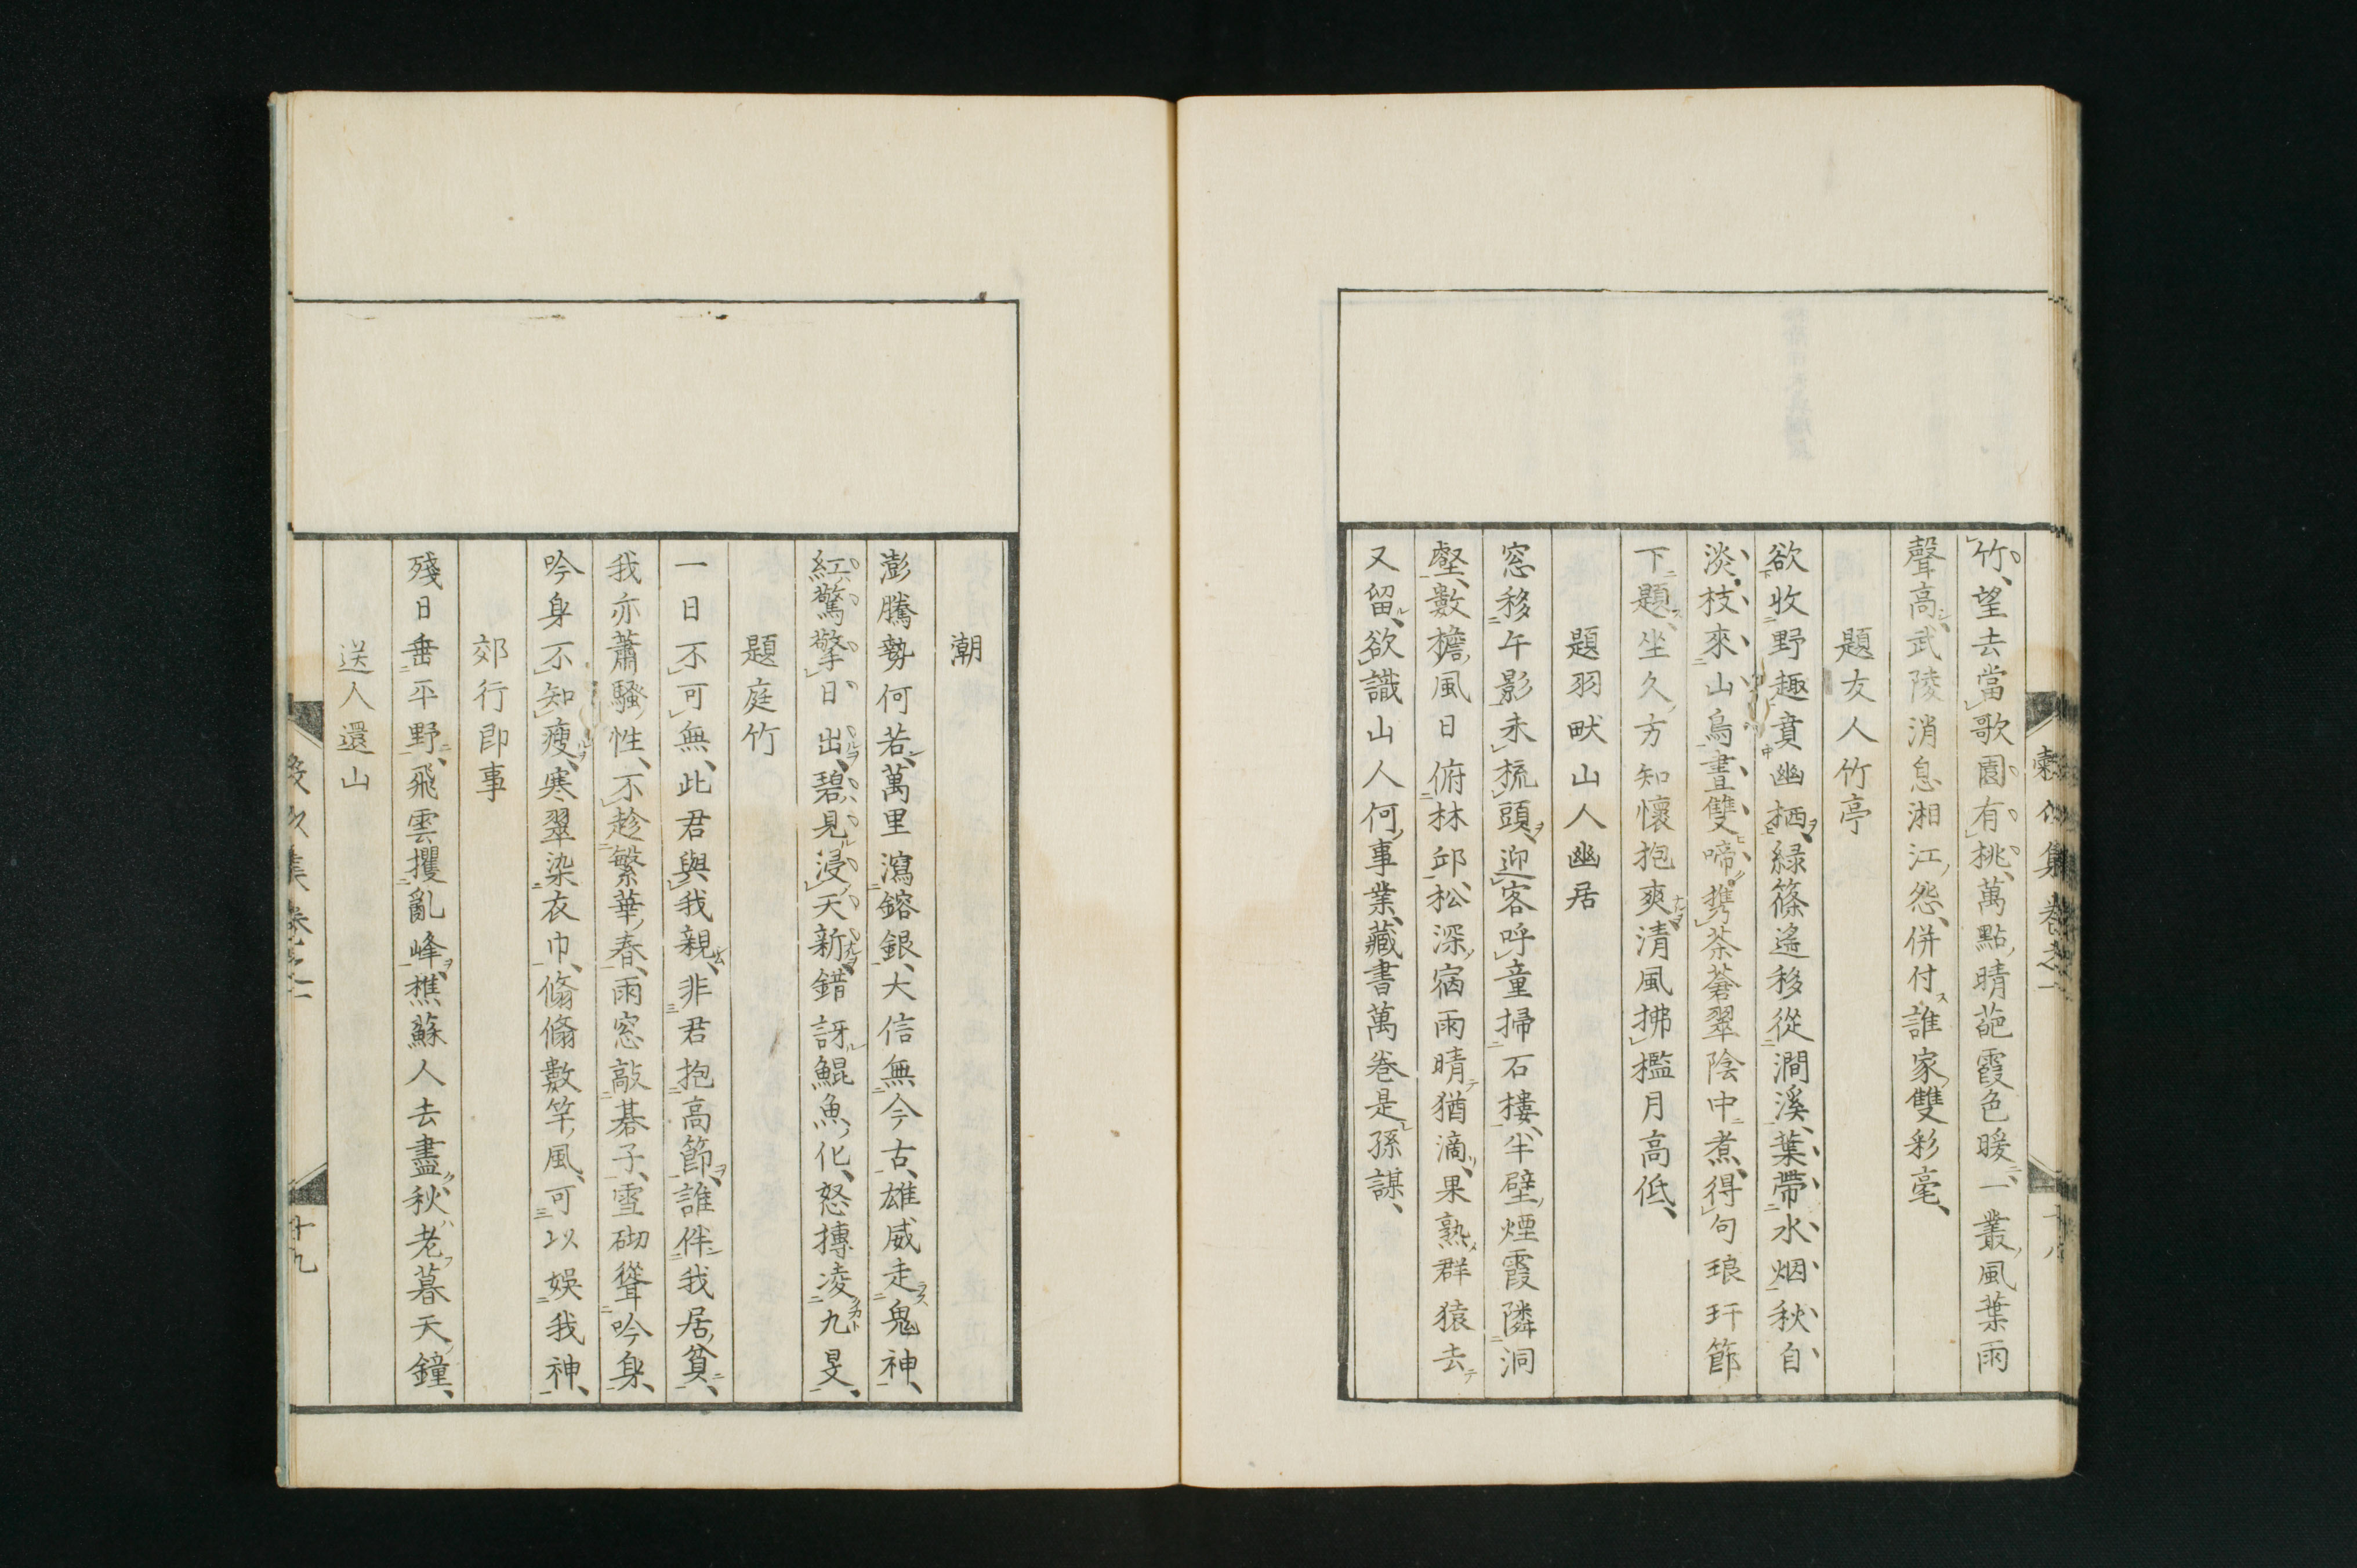 竹望去當歌園有桃萬點晴葩霞色暖一叢風葉雨
聲高武陵消息湘江怨併付誰家雙彩毫
題友人竹亭
欲收野趣賁幽栖緑篠遙移從澗溪葉帶水烟秋自
淡枝來山鳥晝雙啼携茶蒼翠陰中煮得句琅玕節
下題坐久方知懷抱爽清風拂檻月高低
題羽畎山人幽居
窓移午影未梳頭迎客呼童掃石樓半壁煙霞隣洞
壑數檐風日俯林邱松深宿雨晴猶滴果熟群猿去
又留欲識山人何事業藏書萬巻是孫謀
潮
澎騰勢何若萬里瀉鎔銀大信無今古雄威走鬼神
紅驚擎日出碧見浸天新錯訝鯤魚化怒摶凌九旻
題庭竹
一日不可無此君與我親非君抱高節誰伴我居貧
我亦蕭騷性不趁繁華春雨窓敲碁子雪砌聳吟身
吟身不知瘦寒翠染衣巾翛翛數竿風可以娯我神
郊行即事
殘日垂平野飛雲攫亂峰樵蘇人去盡秋老暮天鐘
送人還山
集巻之一
十九